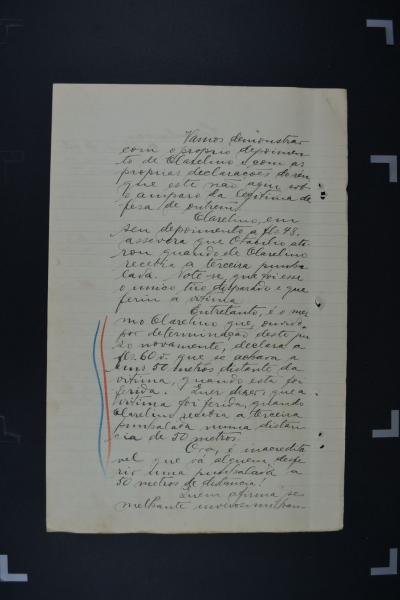 Vamos demonstrar
com o proprio depoimen-
to de Clarelino e com as
proprias declarações do reu
que este não agiu sob
o amparo da legitima de-
fesa de outrem.
Clarelino, em
seu depoimento a fls. 48,
assevera que Otabilio ati-
rou quando de Clarelino
recebia a terceira punha-
lada. Note-se que foi esse
o unico tiro disparado e que
feriu a vitima
Entretanto, é o mes-
mo Clarelino que, ouvido
por determinação deste jui-
zo novamente, declara a
fls. 60v. que se achava a
uns 50 metros distante da
vitima, quando esta foi
ferida. Quer dizer, que a
vitima foi ferida, quando
Clarelino recebia a terceira
punhalada numa distan-
cia de 50 metros.
Ora, é inacredita-
vel que vá alguem, desfe-
rir uma punhalada a
50 metros de distancia!
Quem afirma se-
melhante